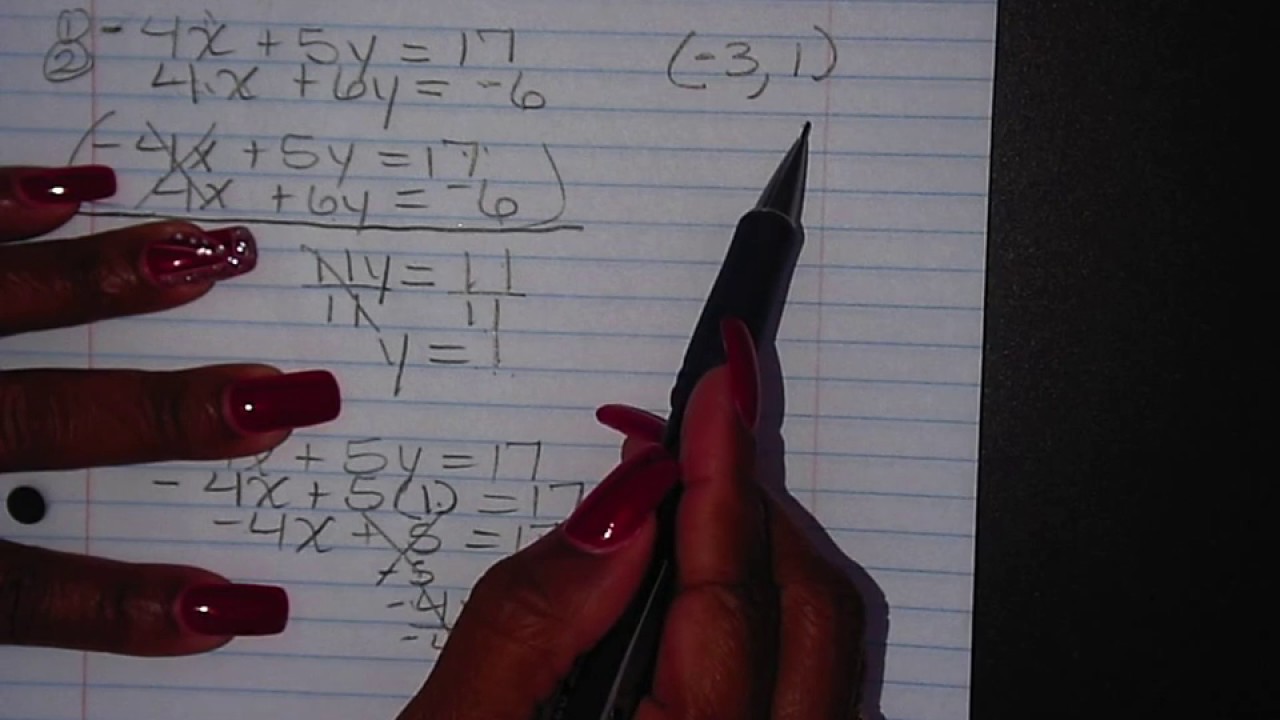 ① -4x + 5y = 17
(-3, 1)
② 4x + 6y = -6
(-4x + 5y = 17
4x + 6y = -6)
11y = 11
11 11
y = 1
x + 5y = 17
-4x + 5(1) = 17
-4x + 5 = 17
-5
-4
-4